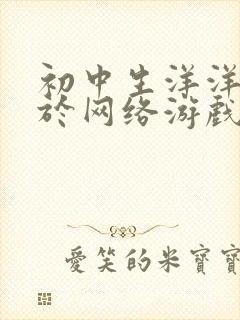 初中生洋洋
於网络游戏
愛笑的米寶寶